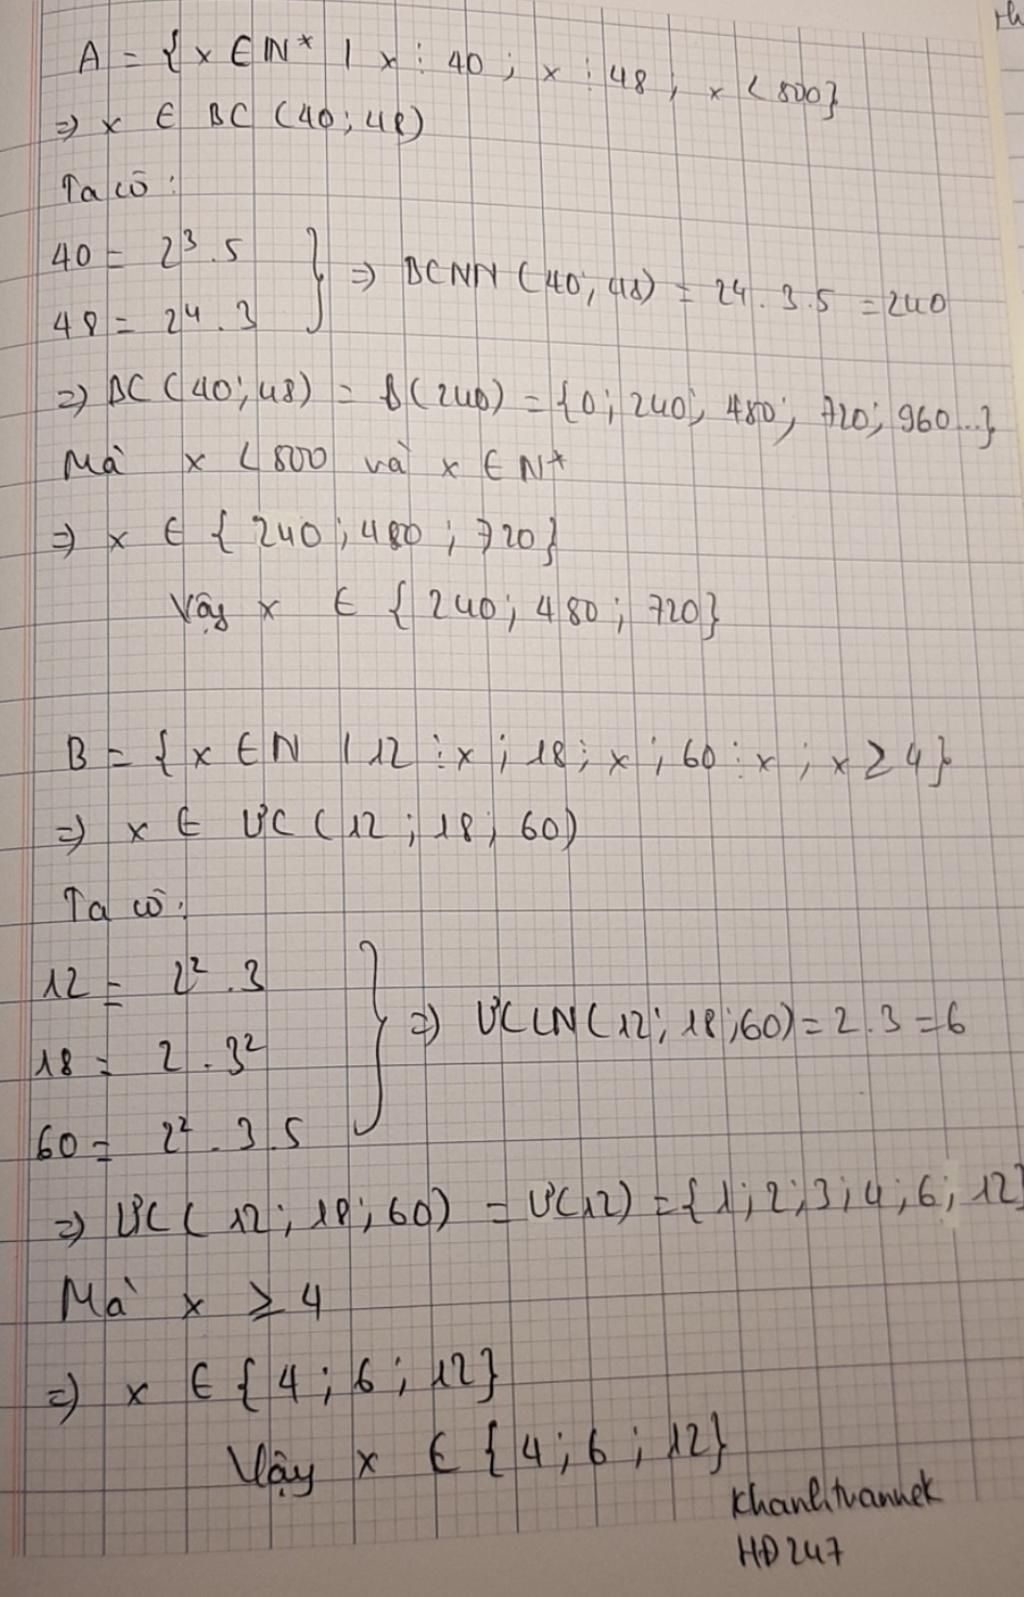 A = {x ∈ N* | x ⋮ 40 ; x ⋮ 48 ; x < 800}
=> x ∈ BC (40 ; 48)
Ta có :
40 = 2³ . 5
48 = 2⁴ . 3
} => BCNN (40 ; 48) = 2⁴ . 3 . 5 = 240
=> BC (40 ; 48) = B(240) = {0 ; 240 ; 480 ; 720 ; 960...}
Mà x < 800 và x ∈ N*
=> x ∈ {240 ; 480 ; 720}
Vậy x ∈ {240 ; 480 ; 720}
B = {x ∈ N | 12 ⋮ x ; 18 ⋮ x ; 60 ⋮ x ; x ≥ 4}
=> x ∈ ƯC (12 ; 18 ; 60)
Ta có :
12 = 2² . 3
18 = 2 . 3²
60 = 2² . 3 . 5
} => ƯCLN (12 ; 18 ; 60) = 2 . 3 = 6
=> ƯC (12 ; 18 ; 60) = Ư(12) = {1 ; 2 ; 3 ; 4 ; 6 ; 12}
Mà x ≥ 4
=> x ∈ {4 ; 6 ; 12}
Vậy x ∈ {4 ; 6 ; 12}
HĐ247